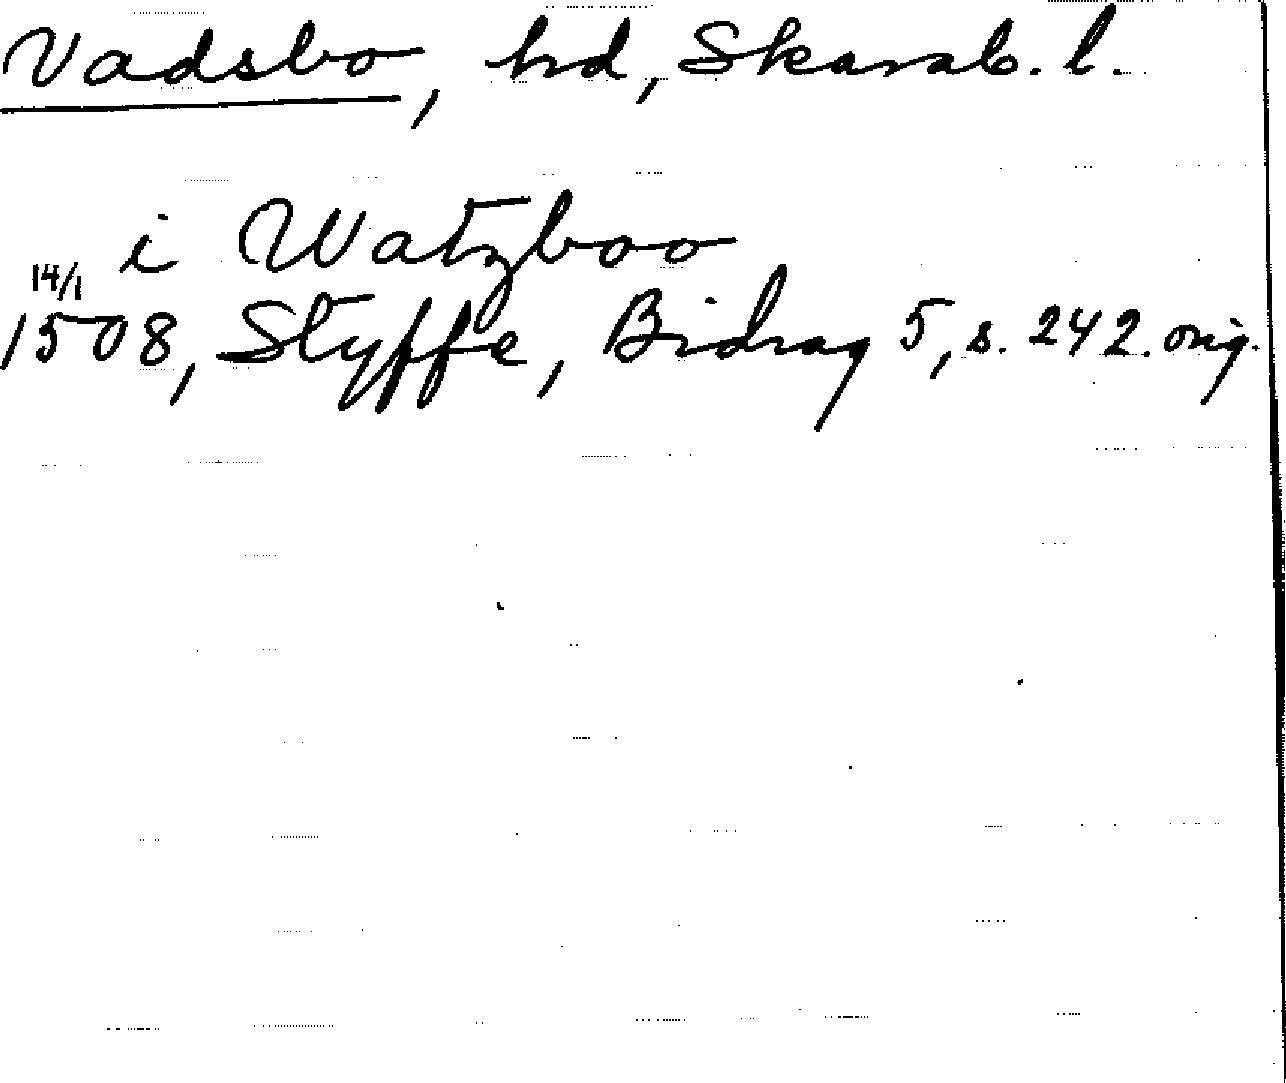 Vadsbo, hd, Skarab. l.
i Watzboo
14/1
1508, Styffe, Bidrag 5, s. 242. orig.